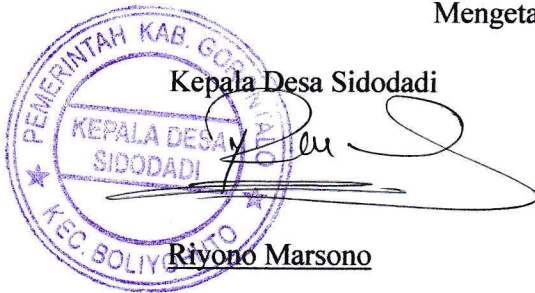 Mengeta
Kepala Desa Sidodadi
PEMERINTAH KAB. GORONTALO
KEPALA DESA
SIDODADI
KEC. BOLIYOHUTO
Riyono Marsono